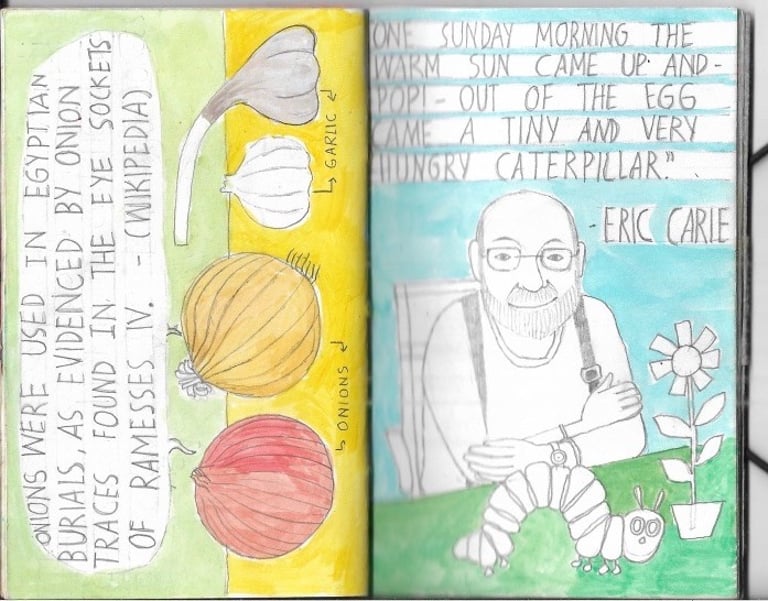 ONIONS WERE USED IN EGYPTIAN
BURIALS, AS EVIDENCED BY ONION
TRACES FOUND IN THE EYE SOCKETS
OF RAMESSES IV. - (WIKIPEDIA)
GARLIC
ONIONS
ONE SUNDAY MORNING THE
WARM SUN CAME UP AND -
POP! - OUT OF THE EGG
CAME A TINY AND VERY
HUNGRY CATERPILLAR."
- ERIC CARLE